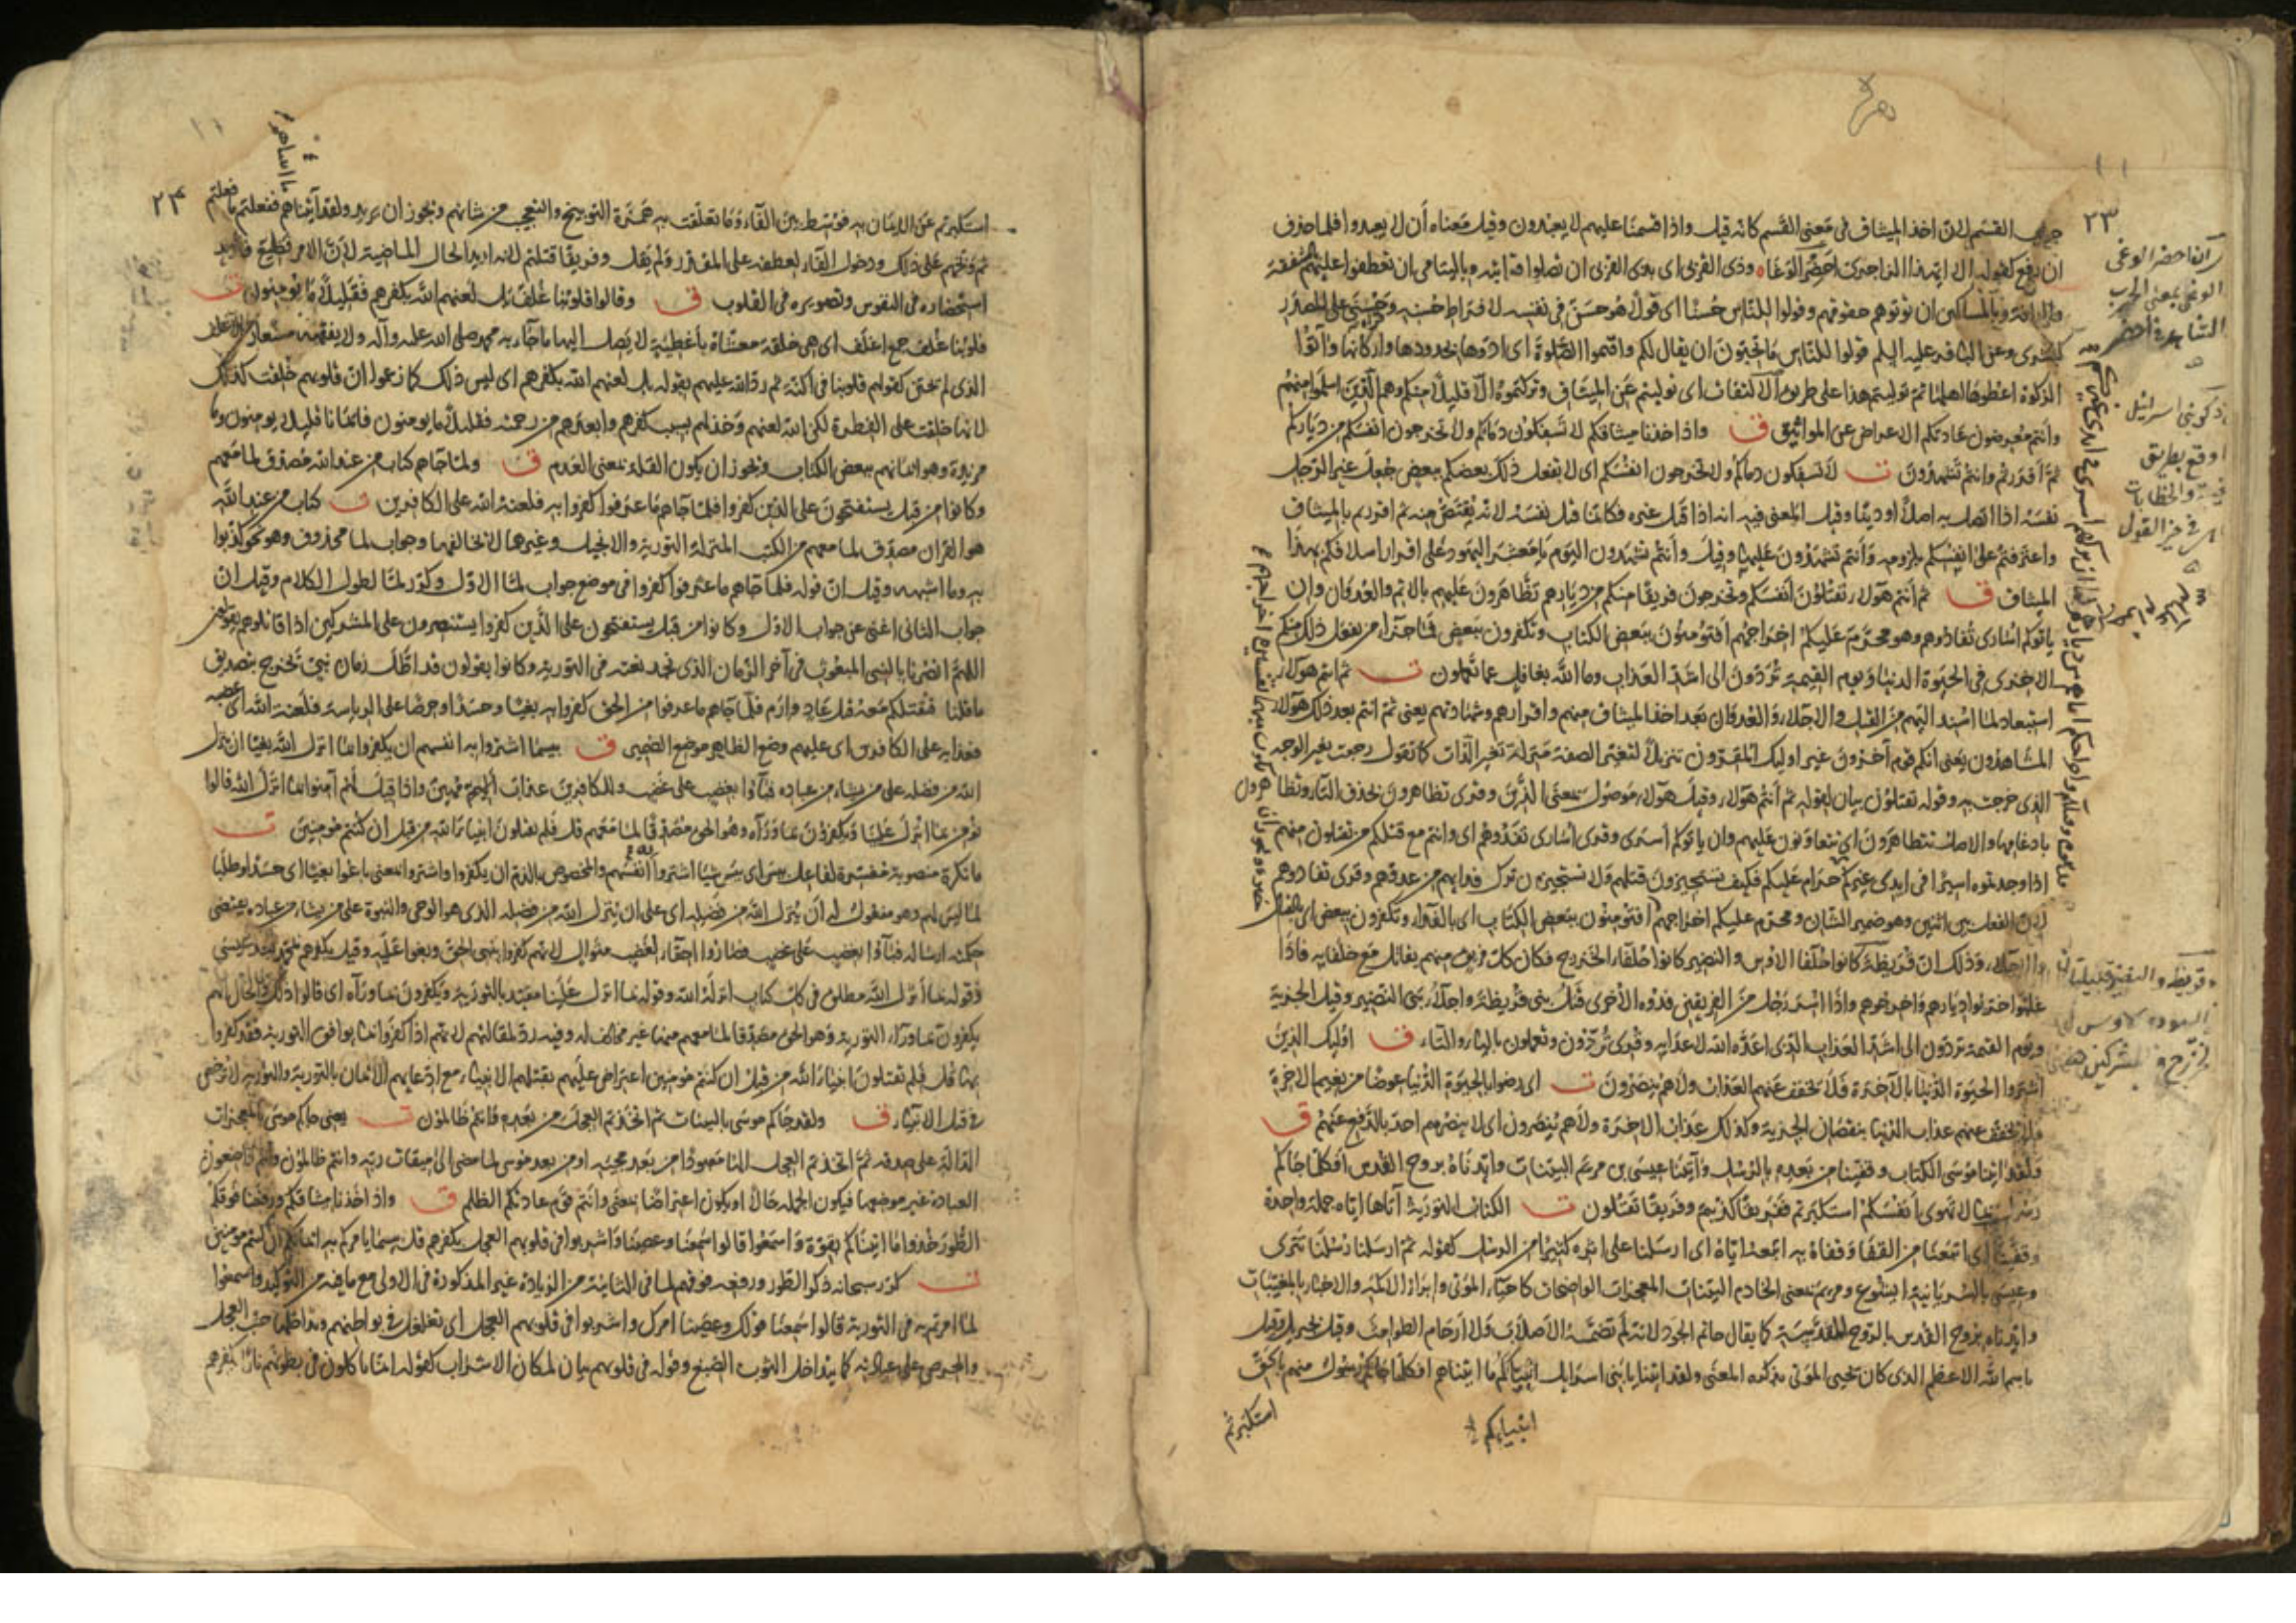 ٢٣
جواب القسم لان اخذ الميثاق فى معنى القسم كانه قيل واذا قسمنا عليهم لا يعبدون وقيل معناه أن لا يعبدوا فلما حذف
ان رفع كقوله الا ايهذا الزاجرى احضر الوغا وذى القربى اى بذى القربى ان تصلوا قرابته وباليتامى ان تعطفوا عليهم
وبالمساكين ان تؤتوهم حقوقهم وقولوا للناس حسنا اى قولا هو حسن فى نفسه لافراط حسنه وحسنى على المصدر
كبشرى وعن الباقر عليه السلم قولوا للناس ما تحبون ان يقال لكم واقيموا الصلوة اى ادوها بحدودها واركانها وآتوا
الزكوة اعطوها اهلها ثم توليتم هذا على طريق الالتفات اى توليتم عن الميثاق وتركتموه الا قليلا منكم وهم الذين اسلموا منهم
وانتم معرضون عادتكم الاعراض عن المواثيق ق واذ اخذنا ميثاقكم لا تسفكون دمائكم ولا تخرجون انفسكم من دياركم
ثم أقررتم وانتم تشهدون ت لا تسفكون دماكم ولا تخرجون انفسكم اى لا يفعل ذلك بعضكم ببعض جعل غير الرجل
نفسه اذا اتصل به اصلا او دينا وقيل المعنى فيه انه اذا قتل غيره فكانما قتل نفسه لانه يقتص منه ثم اقررتم بالميثاق
واعترفتم على انفسكم بلزومه وأنتم تشهدون عليها وقيل وأنتم تشهدون اليوم يا معشر اليهود على اقرار اسلافكم بهذا
الميثاق ق ثم أنتم هؤلاء تقتلون أنفسكم وتخرجون فريقا منكم من ديارهم تظاهرون عليهم بالاثم والعدوان وان
ياتوكم اسارى تفادوهم وهو محرم عليكم اخراجهم أفتؤمنون ببعض الكتاب وتكفرون ببعض فما جزآء من يفعل ذلك منكم
الا خزى فى الحيوة الدنيا ويوم القيمة تردون الى اشد العذاب وما الله بغافل عما تعملون ت ثم انتم هؤلاء
استبعاد لما اسند اليهم من القتل والاجلاء والعدوان بعد اخذ الميثاق منهم واقرارهم وشهادتهم يعنى ثم انتم بعد ذلك هؤلاء
المشاهدون يعنى انكم قوم آخرون غير اوليك المقرون تنزيلا لتغير الصفة منزلة تغير الذات كما تقول رجعت بغير الوجه
الذى خرجت به وقوله تقتلون بيان لقوله ثم أنتم هؤلاء وقيل هؤلاء موصول بمعنى الذين وقرى تظاهرون بحذف التاء وتظاهرون
بادغامها والاصل تتظاهرون اى تتعاونون عليهم وان ياتوكم أسرى وقرى أسارى تفدوهم اى وانتم مع قتلكم من تقتلون منهم
اذا وجدتموه اسيرا فى ايدى غيركم حرام عليكم فكيف تستجيزون قتلهم ولا تستجيزون ترك فدايهم من عدوهم وقرى تفادوهم
لان الفعل بين اثنين وهو ضمير الشان ومحرم عليكم اخراجهم أفتؤمنون ببعض الكتاب اى بالفداء وتكفرون ببعض اى بالقتال
والاجلاء وذلك ان قريظة كانوا حلفا الاوس والنضير كانوا حلفاء الخزرج فكان كل فريق منهم يقاتل مع حلفايه فاذا
غلبوا خربوا ديارهم واخرجوهم واذا اسر رجل من الفريقين فدوه الاخزى قتل بنى قريظة واجلاء بنى النضير وقيل الجزية
ويوم القيمة تردون الى اشد العذاب الذى اعده الله لاعدايه وقرى تردون وتعملون بالياء والتاء ق اوليك الذين
اشتروا الحيوة الدنيا بالآخرة فلا يخفف عنهم العذاب ولا هم ينصرون ت اى رضوا بالحيوة الدنيا عوضا من نعيم الاخرة
فلا يخفف عنهم عذاب الدنيا بنقصان الجزية وكذلك عذاب الاخرة ولا هم ينصرون اى لا ينصرهم احد بالدفع عنهم ق
ولقد اتينا موسى الكتاب وقفينا من بعده بالرسل وآتينا عيسى بن مريم البينات وايدناه بروح القدس افكلما جاكم
رسول بما لا تهوى أنفسكم استكبرتم ففريقا كذبتم وفريقا تقتلون ت الكتاب التورية آتاها اياه جملة واحدة
وقفينا اى اتبعنا من القفا وقفاه به اتبعه اياه اى ارسلنا على اثره كثيرا من الرسل كقوله ثم ارسلنا رسلنا تترى
وعيسى بالسريانية ايشوع ومريم بمعنى الخادم البينات المعجزات الواضحات كاحياء الموتى وابراء الاكمه والاخبار بالمغيبات
وايدناه بروح القدس بالروح المقدسة كما يقال حاتم الجود لانه لم تضمه الاصلاب ولا ارحام الطوامث وقيل بجبريل وقيل
باسم الله الاعظم الذى كان يحيى الموتى بذكره المعنى ولقد اتينا يا بنى اسرايل انبياكم ما اتيناهم افكلما جاكم رسول منهم بالحق
انبياءكم
استكبرتم
احضر الوغى
الوغى بمعنى الحرب
٢٤
استكبرتم عن الايمان به فوسط بين الفاء وما تعلقت به همزة التوبيخ والتعجيب من شانهم ويجوز ان يريد ولقد آتيناهم ففعلتم ما فعلتم
ثم وبخهم على ذلك ودخول الفاء لعطفه على المقدر ولم يقل وفريقا قتلتم لانه اريد الحال الماضية لان الامر فظيع فاريد
استحضاره فى النفوس وتصويره فى القلوب ق وقالوا قلوبنا غلف بل لعنهم الله بكفرهم فقليلا ما يؤمنون ت
قلوبنا غلف جمع اغلف اى هى خلقة مغشاة بأغطية لا يصل اليها ما جاء به محمد صلى الله عليه وآله ولا يفقهه مستعار من الاغلف
الذى لم يختن كقولهم قلوبنا فى اكنة ثم رد الله عليهم بقوله بل لعنهم الله بكفرهم اى ليس ذلك كما زعموا ان قلوبهم خلقت كذلك
لانها خلقت على الفطرة لكن الله لعنهم وخذلهم بسبب كفرهم وابعدهم من رحمته فقليلا ما يومنون فايمانا قليلا يومنون وما
مزيدة وهو ايمانهم ببعض الكتاب ويجوز ان يكون القلة بمعنى العدم ق ولما جاهم كتاب من عند الله مصدق لما معهم
وكانوا من قبل يستفتحون على الذين كفروا فلما جاهم ما عرفوا كفروا به فلعنة الله على الكافرين ت كتاب من عند الله
هو القران مصدق لما معهم من الكتب المنزلة التورية والانجيل وغيرهما لا يخالفها وجواب لما محذوف وهو نحو كذبوا
به وما اشبهه وقيل ان قوله فلما جاهم ما عرفوا كفروا فى موضع جواب لما الاول وكرر لما لطول الكلام وقيل ان
جواب الثانى اغنى عن جواب الاول وكانوا من قبل يستفتحون على الذين كفروا يستنصرون على المشركين اذا قاتلوهم يقولون
اللهم انصرنا بالنبى المبعوث فى آخر الزمان الذى نجد نعته فى التورية وكانوا يقولون قد اظل زمان نبى يخرج بتصديق
ما قلنا فنقتلكم معه قتل عاد وارم فلما جاهم ما عرفوا من الحق كفروا به بغيا وحسدا وحرصا على الرياسة فلعنة الله اى غضبه
وعذابه على الكافرين اى عليهم وضع الظاهر موضع الضمير ق بيسما اشتروا به انفسهم ان يكفروا بما انزل الله بغيا ان ينزل
الله من فضله على من يشاء من عباده فبآؤا بغضب على غضب وللكافرين عذاب أليم مهين واذا قيل لهم آمنوا بما انزل الله قالوا
نؤمن بما انزل علينا ويكفرون بما ورآه وهو الحق مصدقا لما معهم قل فلم تقتلون انبياء الله من قبل ان كنتم مؤمنين ت
ما نكرة منصوبة مفسرة لفاعل بيس اى بيس شيئا اشتروا به انفسهم والمخصوص بالذم ان يكفروا واشتروا بمعنى باعوا بغيا اى حسدا وطلبا
لما ليس لهم وهو مفعول له أن ينزل الله من فضله اى على ان ينزل الله من فضله الذى هو الوحى والنبوة على من يشاء من عباده يقتضى
حكمته ارساله فبآؤا بغضب على غضب فصاروا احقاء لغضب متوال لانهم كفروا بنبى الحق وبغوا عليه وقيل بكفرهم بمحمد بعد عيسى
وقوله بما أنزل الله مطلق فى كل كتاب انزله الله وقوله بما انزل علينا مقيد بالتورية ويكفرون بما ورآه اى قالوا ذلك والحال انهم
يكفرون بما ورآء التورية وهو الحق مصدقا لما معهم منها غير مخالف له وفيه رد لمقالتهم لانهم اذا كفروا بما يوافق التورية فقد كفروا
بها قل فلم تقتلون انبياء الله من قبل ان كنتم مؤمنين اعتراض عليهم بقتلهم الانبياء مع ادعايهم الايمان بالتورية والتورية لا ترضى
فى قتل الانبياء ق ولقد جاكم موسى بالبينات ثم اتخذتم العجل من بعده وانتم ظالمون ت يعنى جاكم موسى بالمعجزات
الدالة على صدقه ثم اتخذتم العجل الها معبودا من بعد مجيه او من بعد موسى لما مضى الى ميقات ربه وانتم ظالمون وانتم واضعون
العبادة غير موضعها فيكون الجملة حالا او يكون اعتراضا بمعنى وانتم قوم عادتكم الظلم ق واذ اخذنا ميثاقكم ورفعنا فوقكم
الطور خذوا ما اتيناكم بقوة واسمعوا قالوا سمعنا وعصينا واشربوا فى قلوبهم العجل بكفرهم قل بيسما يامركم به ايمانكم ان كنتم مومنين
ت كرر سبحانه ذكر الطور ورفعه فوقهم لما فى الثانية من الزيادة غير المذكورة فى الاولى مع ما فيه من التوكيد واسمعوا
لما امرتم به فى التورية قالوا سمعنا قولك وعصينا امرك واشربوا فى قلوبهم العجل اى تغلغل فى بواطنهم وتداخلها حب العجل
والحرص على عبادته كما يتداخل الثوب الصبغ وقوله فى قلوبهم بيان لمكان الاشراب كقوله انما ياكلون فى بطونهم نارا بكفرهم